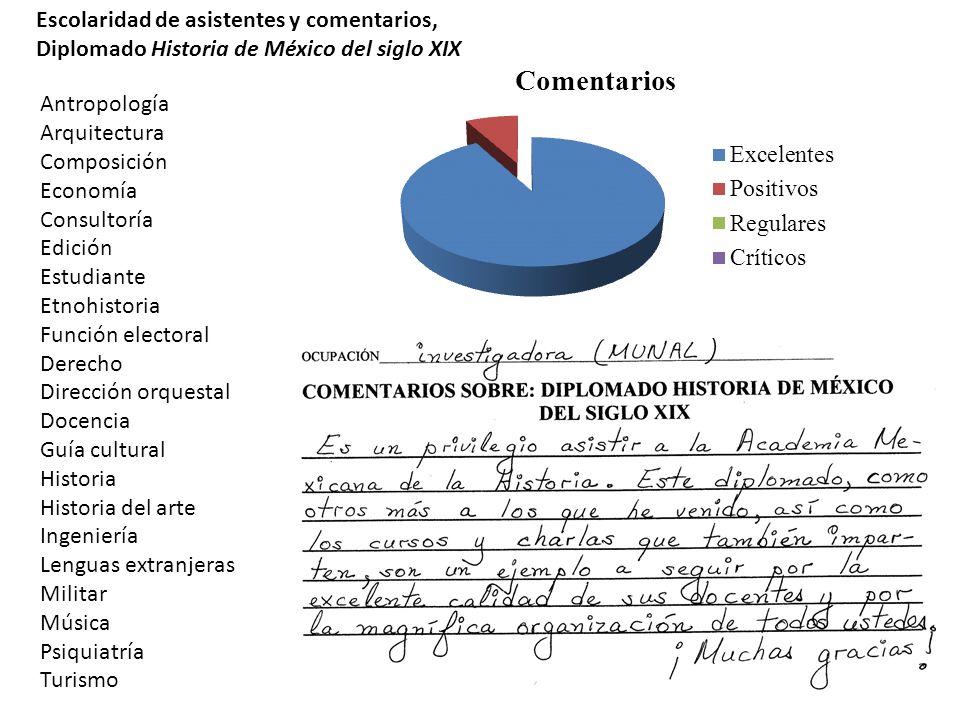 Escolaridad de asistentes y comentarios,
Diplomado Historia de México del siglo XIX
Antropología
Arquitectura
Composición
Economía
Consultoría
Edición
Estudiante
Etnohistoria
Función electoral
Derecho
Dirección orquestal
Docencia
Guía cultural
Historia
Historia del arte
Ingeniería
Lenguas extranjeras
Militar
Música
Psiquiatría
Turismo
Comentarios
Excelentes
Positivos
Regulares
Críticos
OCUPACIÓN investigadora (MUNAL)
COMENTARIOS SOBRE: DIPLOMADO HISTORIA DE MÉXICO
DEL SIGLO XIX
Es un privilegio asistir a la Academia Me-
xicana de la Historia. Este diplomado, como
otros más a los que he venido, así como
los cursos y charlas que también impar-
ten, son un ejemplo a seguir por la
excelente calidad de sus docentes y por
la magnífica organización de todos ustedes.
¡Muchas gracias!